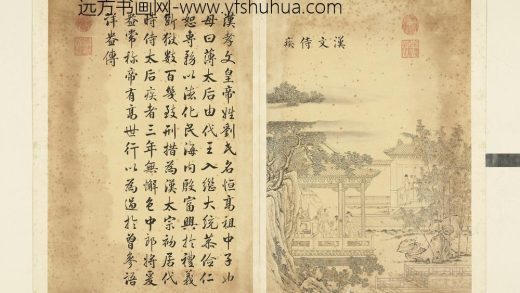 远方书画网-www.yfshuhua.com
漢文侍疾
漢孝文皇帝姓劉氏名恒高祖中子也
母曰薄太后由代王入繼大統恭儉仁
恕專務以德化民海內殷富興於禮義
斷獄數百幾致刑措為漢太宗初居代
時侍太后疾者三年無懈色中郎將爰
盎常稱帝有高世行以為過於曾參語
詳盎傳